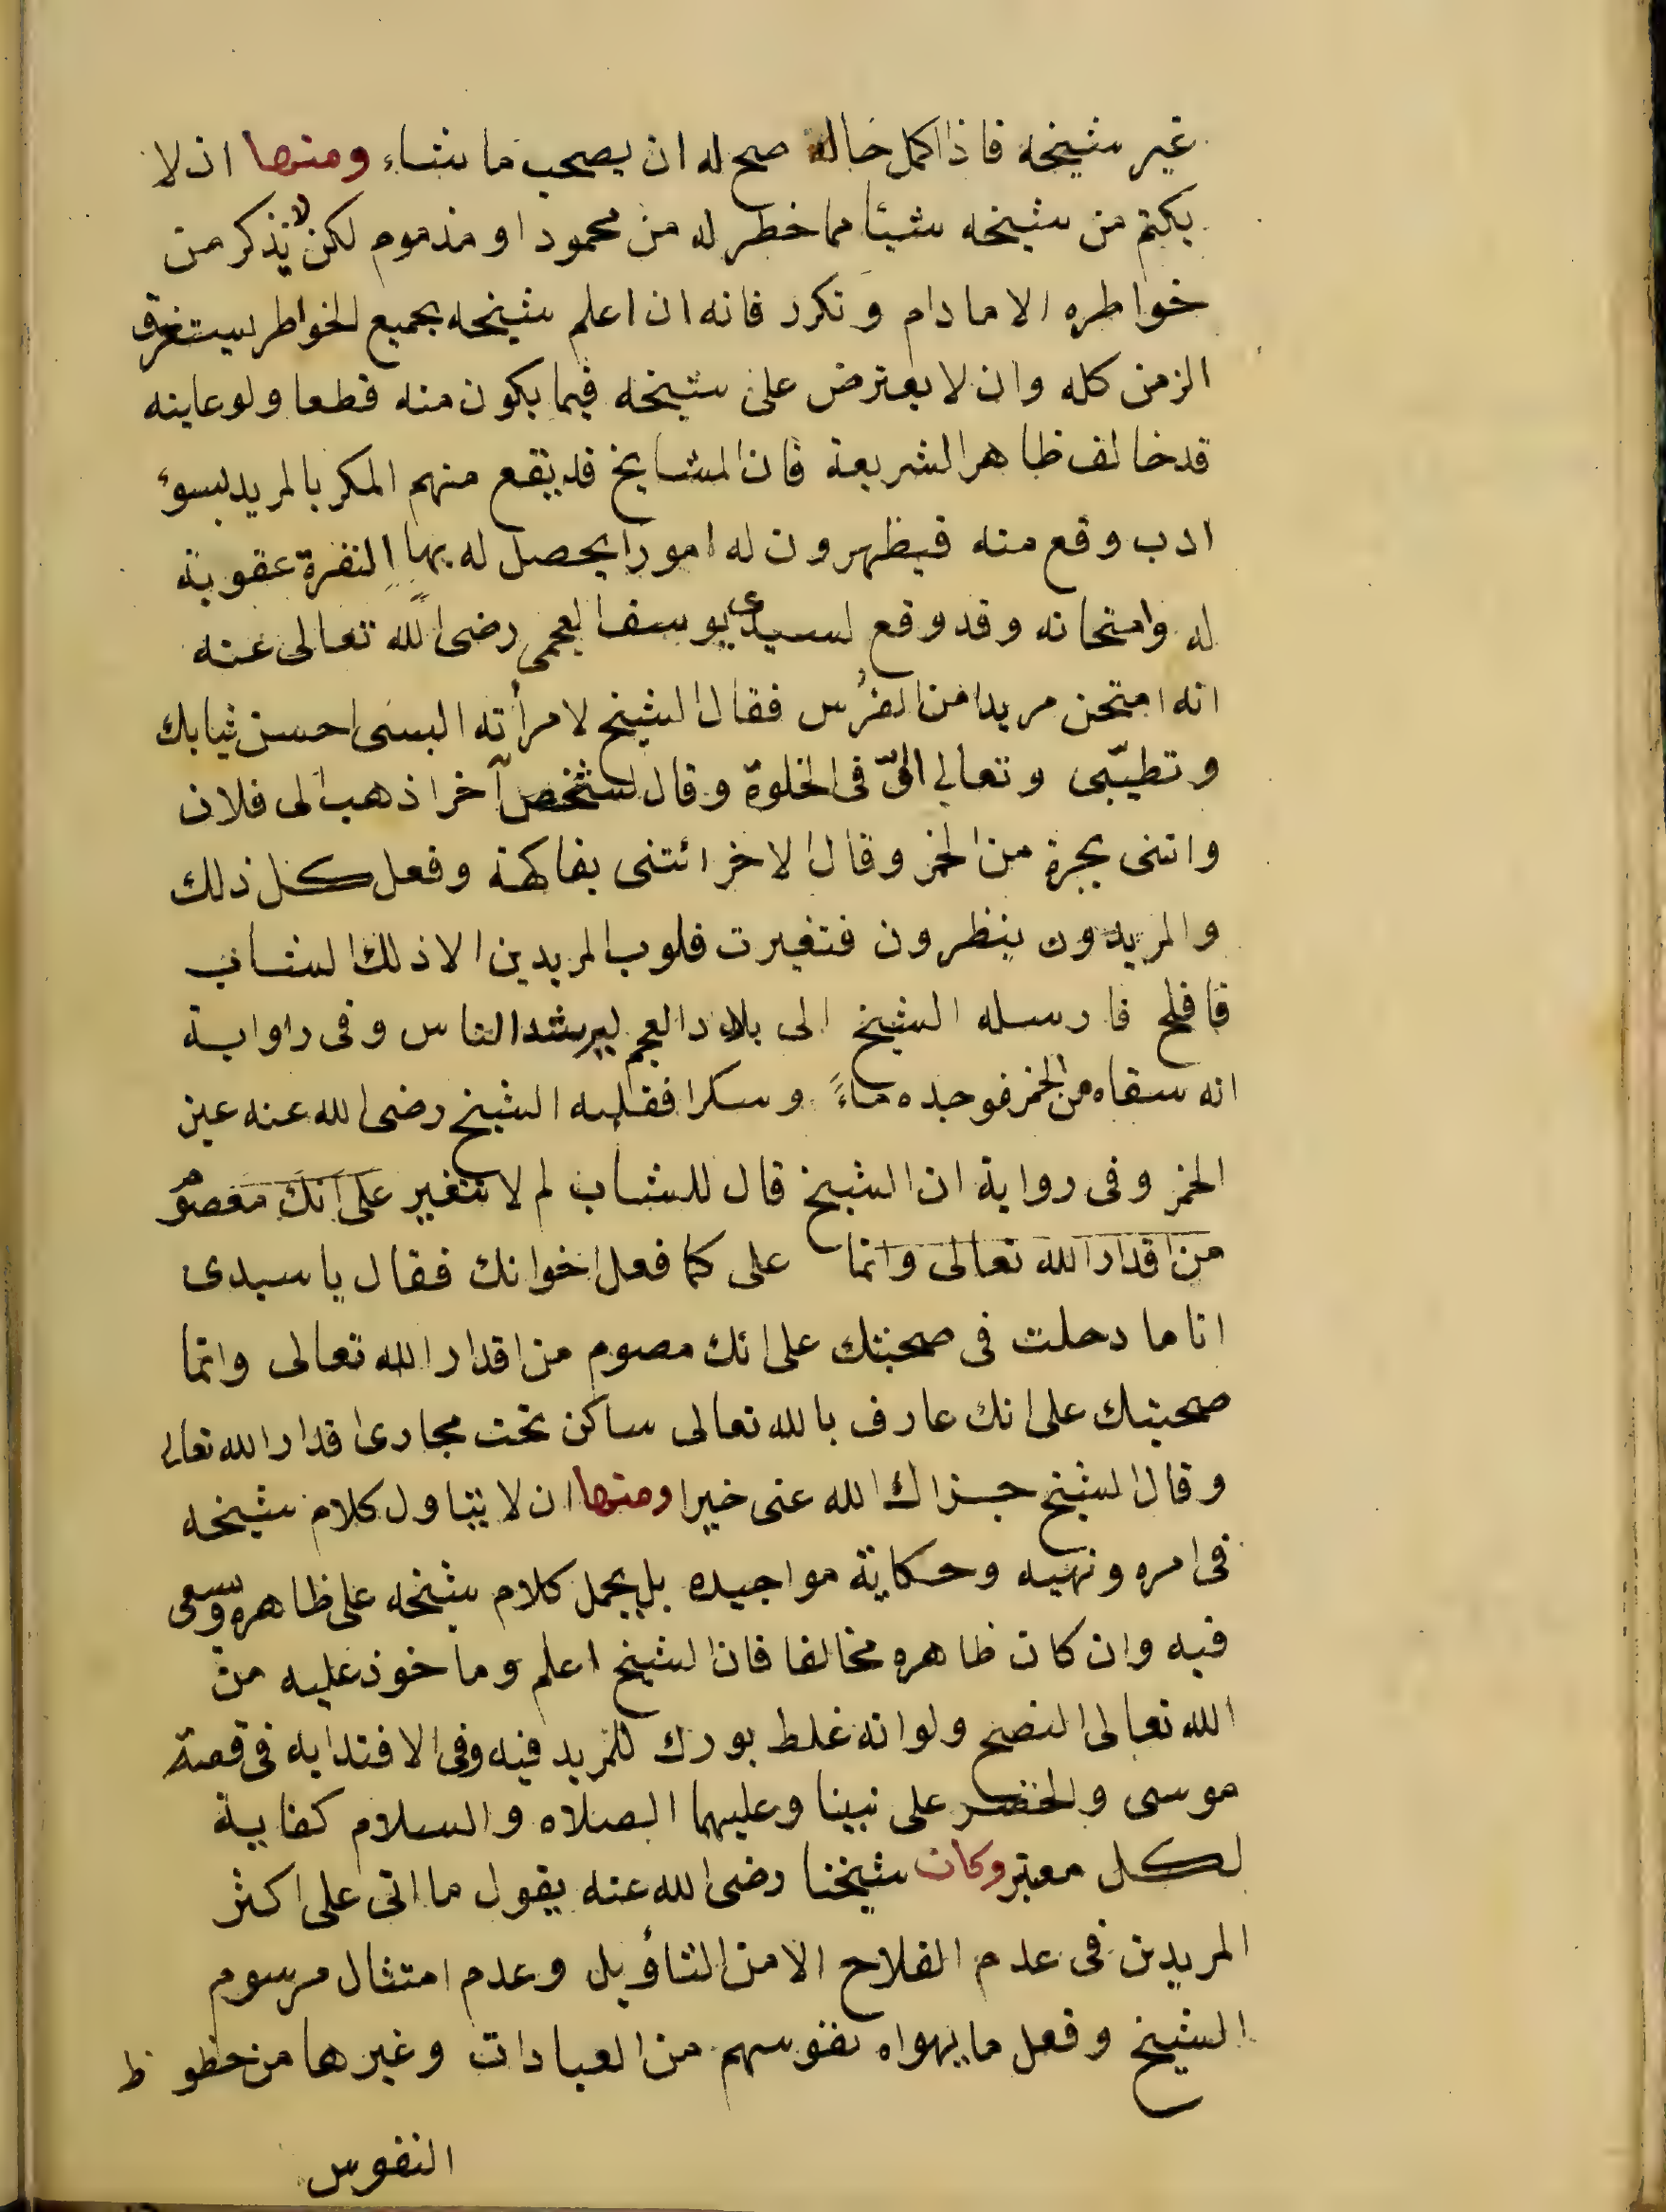 غير شيخه فاذا كمل حاله صح له ان يصحب ما شاء ومنها ان لا
يكتم من شيخه شيئا مما خطر له من محمود او مذموم لكن لا يذكر من
خواطره الا ما دام وتكرر فانه ان اعلم شيخه بجميع الخواطر يستغرق
الزمن كله وان لا يعترض على شيخه فيما يكون منه قطعا ولو عاينه
قد خالف ظاهر الشريعة فان المشايخ قد يقع منهم المكر بالمريد بسوء
ادب وقع منه فيظهرون له امورا يحصل له بها النفرة عقوبة
له وامتحانه وقد وقع لسيدى يوسف العجمى رضى الله تعالى عنه
انه امتحن مريدا من الفرس فقال الشيخ لامرأته البسى احسن ثيابك
وتطيّبى وتعالى الىّ فى الخلوة وقال لشخص آخر اذهب الى فلان
واتنى بجرة من الخمر وقال لاخر ائتنى بفاكهة وفعل كل ذلك
والمريدون ينظرون فتغيرت قلوب المريدين الا ذلك الشاب
فافلح فارسله الشيخ الى بلاد العجم ليرشد الناس وفى راواية
انه سقاه من الخمر فوجده ماءً وسكرا فقلبه الشيخ رضى الله عنه عين
الخمر وفى رواية ان الشيخ قال للشاب لم لا تتغير على انك معصوم
من اقدار الله تعالى وانما على كما فعل اخوانك فقال يا سيدى
انا ما دحلت فى صحبتك على انك مصوم من اقدار الله تعالى وانما
صحبتك على انك عارف بالله تعالى ساكن تحت مجارى اقدار الله تعالى
وقال الشيخ جزاك الله عنى خيرا ومنها ان لا يتاول كلام شيخه
فى امره ونهيه وحكاية مواجيده بل يحمل كلام شيخه على ظاهره ويسعى
فيه وان كان ظاهره مخالفا فان الشيخ اعلم وماخوذ عليه من
الله تعالى النصح ولو انه غلط بورك للمريد فيه وفى الاقتدا به فى قصة
موسى والخضر على نبينا وعليهما الصلاه والسلام كفاية
لكل معتبر وكان شيخنا رضى الله عنه يقول ما اتى على اكثر
المريدين فى عدم الفلاح الا من التأويل وعدم امتثال مرسوم
الشيخ وفعل ما يهواه نفوسهم من العبادات وغيرها من حظوظ
النفوس